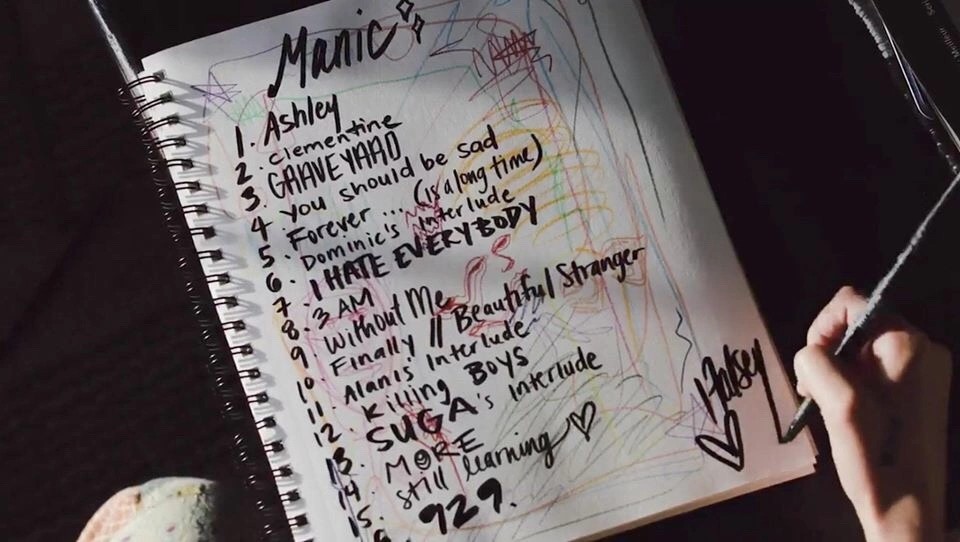 Manic
1. Ashley
2. clementine
3. GRAVEYARD
4. you should be sad
5. Forever ... (is a long time)
6. Dominic's interlude
7. I HATE EVERYBODY
8. 3 AM
9. Without Me
10. Finally // Beautiful Stranger
11. Alanis Interlude
12. Killing BOYS
13. SUGA's interlude
14. MORE
15. still learning
929.
Halsey